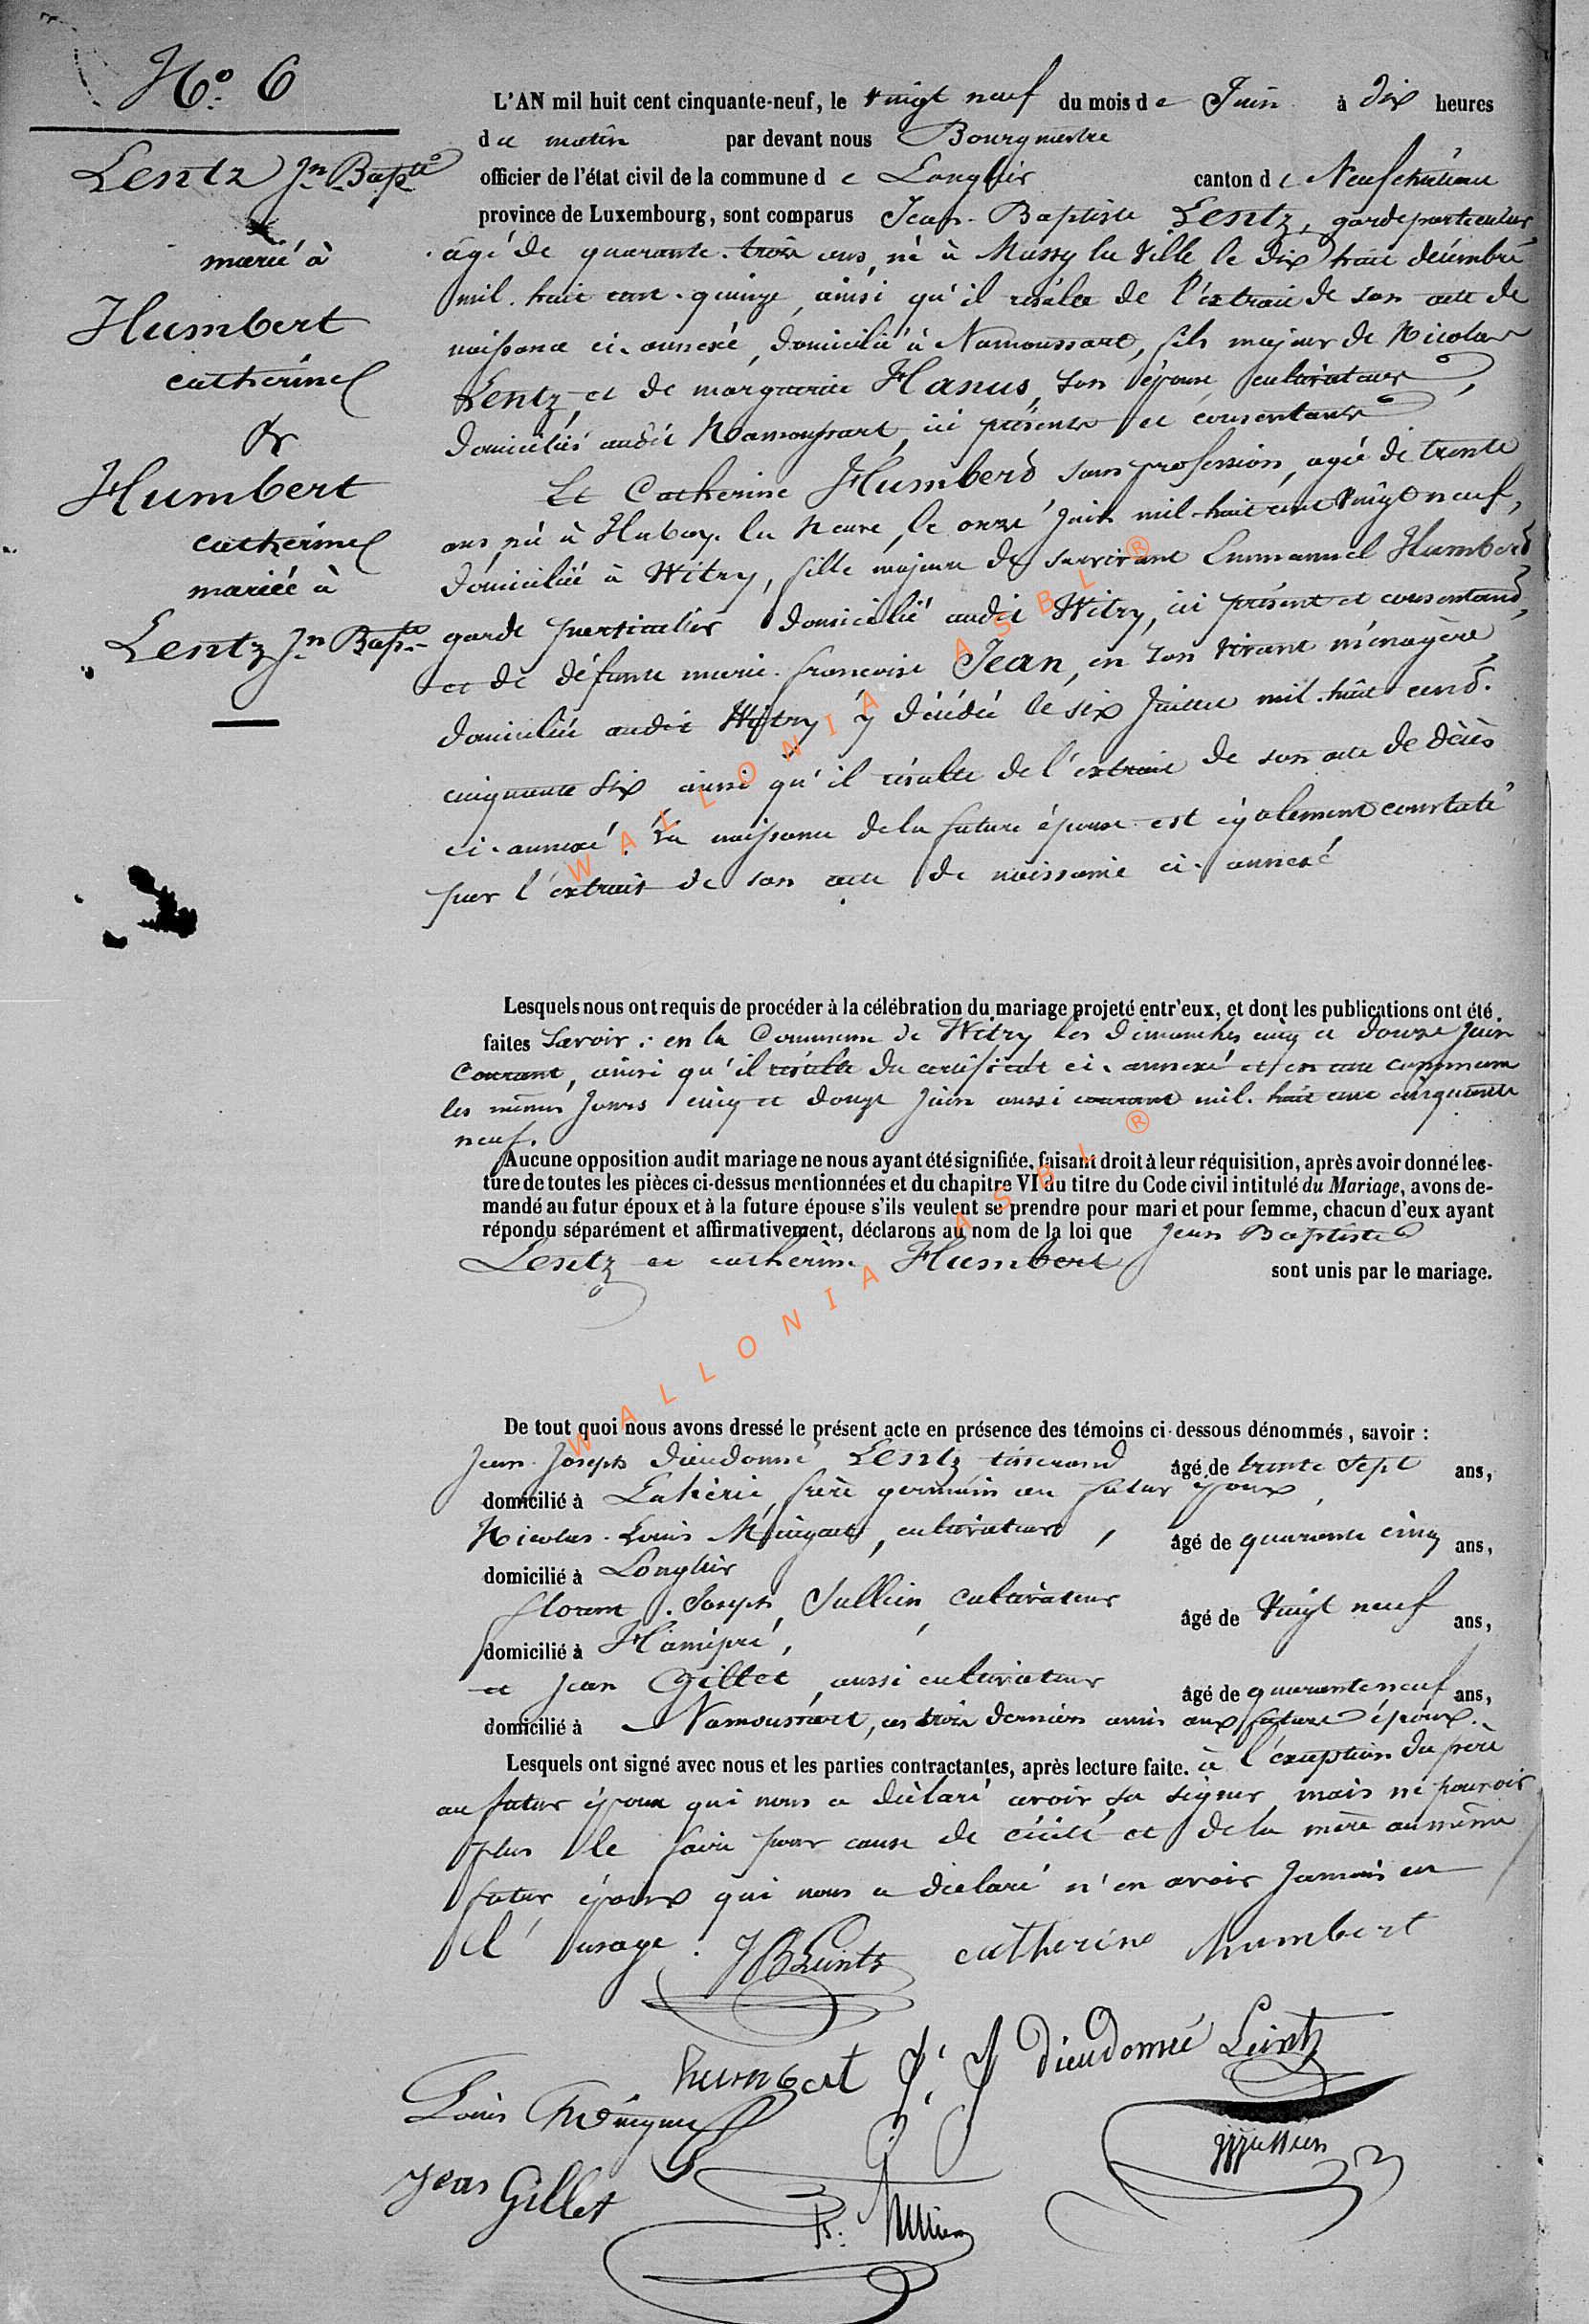 No. 6
Lentz Jn Bapte
marié à
Humbert
catherine
&
Humbert
catherine
mariée à
Lentz Jn Bapte
L'AN mil huit cent cinquante-neuf, le vingt neuf du mois de Juin à dix heures
du matin par devant nous Bourgmestre
officier de l'état civil de la commune de Longlier canton de Neufchâteau
province de Luxembourg, sont comparus Jean-Baptiste Lentz, garde particulier
âgé de quarante-trois ans, né à Mussy la Ville le dix huit décembre
mil-huit cent-quinze, ainsi qu'il résulte de l'extrait de son acte de
naissance ci-annexé, domicilié à Namoussart, fils majeur de Nicolas
Lentz, et de marguerite Hanus, son épouse, cultivateurs,
domiciliés audit Namoussart, ici présents et consentants
Et Catherine Humbert sans profession, agée de trente
ans, née à Habay-la Neuve, le onze Juin mil-huit cent vingt neuf,
domiciliée à Witry, fille majeure de survivant Emmanuel Humbert
garde particulier domicilié audit Witry, ici présent et consentant,
et de défunte marie-françoise Jean, en son vivant ménagère,
domiciliée audit Witry y décédée le six Juillet mil-huit cent-
cinquante six ainsi qu'il résulte de l'extrait de son acte de décès
ci-annexé. La naissance de la future épouse est également constaté
par l'extrait de son acte de naissance ci-annexé
Lesquels nous ont requis de procéder à la célébration du mariage projeté entr'eux, et dont les publications ont été
faites Savoir: en la Commune de Witry les Dimanches cinq et douze Juin
Courant, ainsi qu'il résulte du certificat ci-annexé et en cette commune
les mêmes Jours cinq et douze Juin aussi courant mil-huit cent cinquante
neuf.
Aucune opposition audit mariage ne nous ayant été signifiée, faisant droit à leur réquisition, après avoir donné lec-
ture de toutes les pièces ci-dessus mentionnées et du chapitre VI du titre du Code civil intitulé du Mariage, avons de-
mandé au futur époux et à la future épouse s'ils veulent se prendre pour mari et pour femme, chacun d'eux ayant
répondu séparément et affirmativement, déclarons au nom de la loi que Jean Baptiste
Lentz et catherine Humbert sont unis par le mariage.
De tout quoi nous avons dressé le présent acte en présence des témoins ci-dessous dénommés, savoir :
Jean-Joseph Dieudonné Lentz tisserand âgé de trente sept ans,
domicilié à Lahérie, frère germain au futur époux,
Nicolas-Louis cultivateur, âgé de quarante cinq ans,
domicilié à Longlier
florent-Joseph Jullien, cultivateur âgé de vingt neuf ans,
domicilié à Hamipré,
et Jean Gillet, aussi cultivateur âgé de quarante neuf ans,
domicilié à Namoussart, ces trois derniers amis aux futurs époux.
Lesquels ont signé avec nous et les parties contractantes, après lecture faite. à l'exception du père
au futur époux qui nous a déclaré avoir su signer mais ne pouvoir
plus le faire pour cause de cécité et de la mère au même
futur époux qui nous a déclaré n'en avoir Jamais eu
l'usage.
JBLeintz catherine humbert
humbert J. J Dieudonné Leintz
Louis
Jean Gillet
WALLONIA ASBL ®
WALLONIA ASBL ®